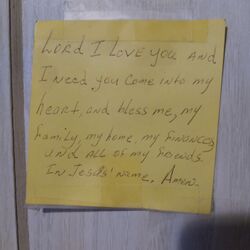 LORD I LOVE YOU AND
I NEED YOU COME INTO my
heart, and bless me, my
family, my home, my FINANCES
AND ALL OF my friends.
IN Jesus' name. Amen.